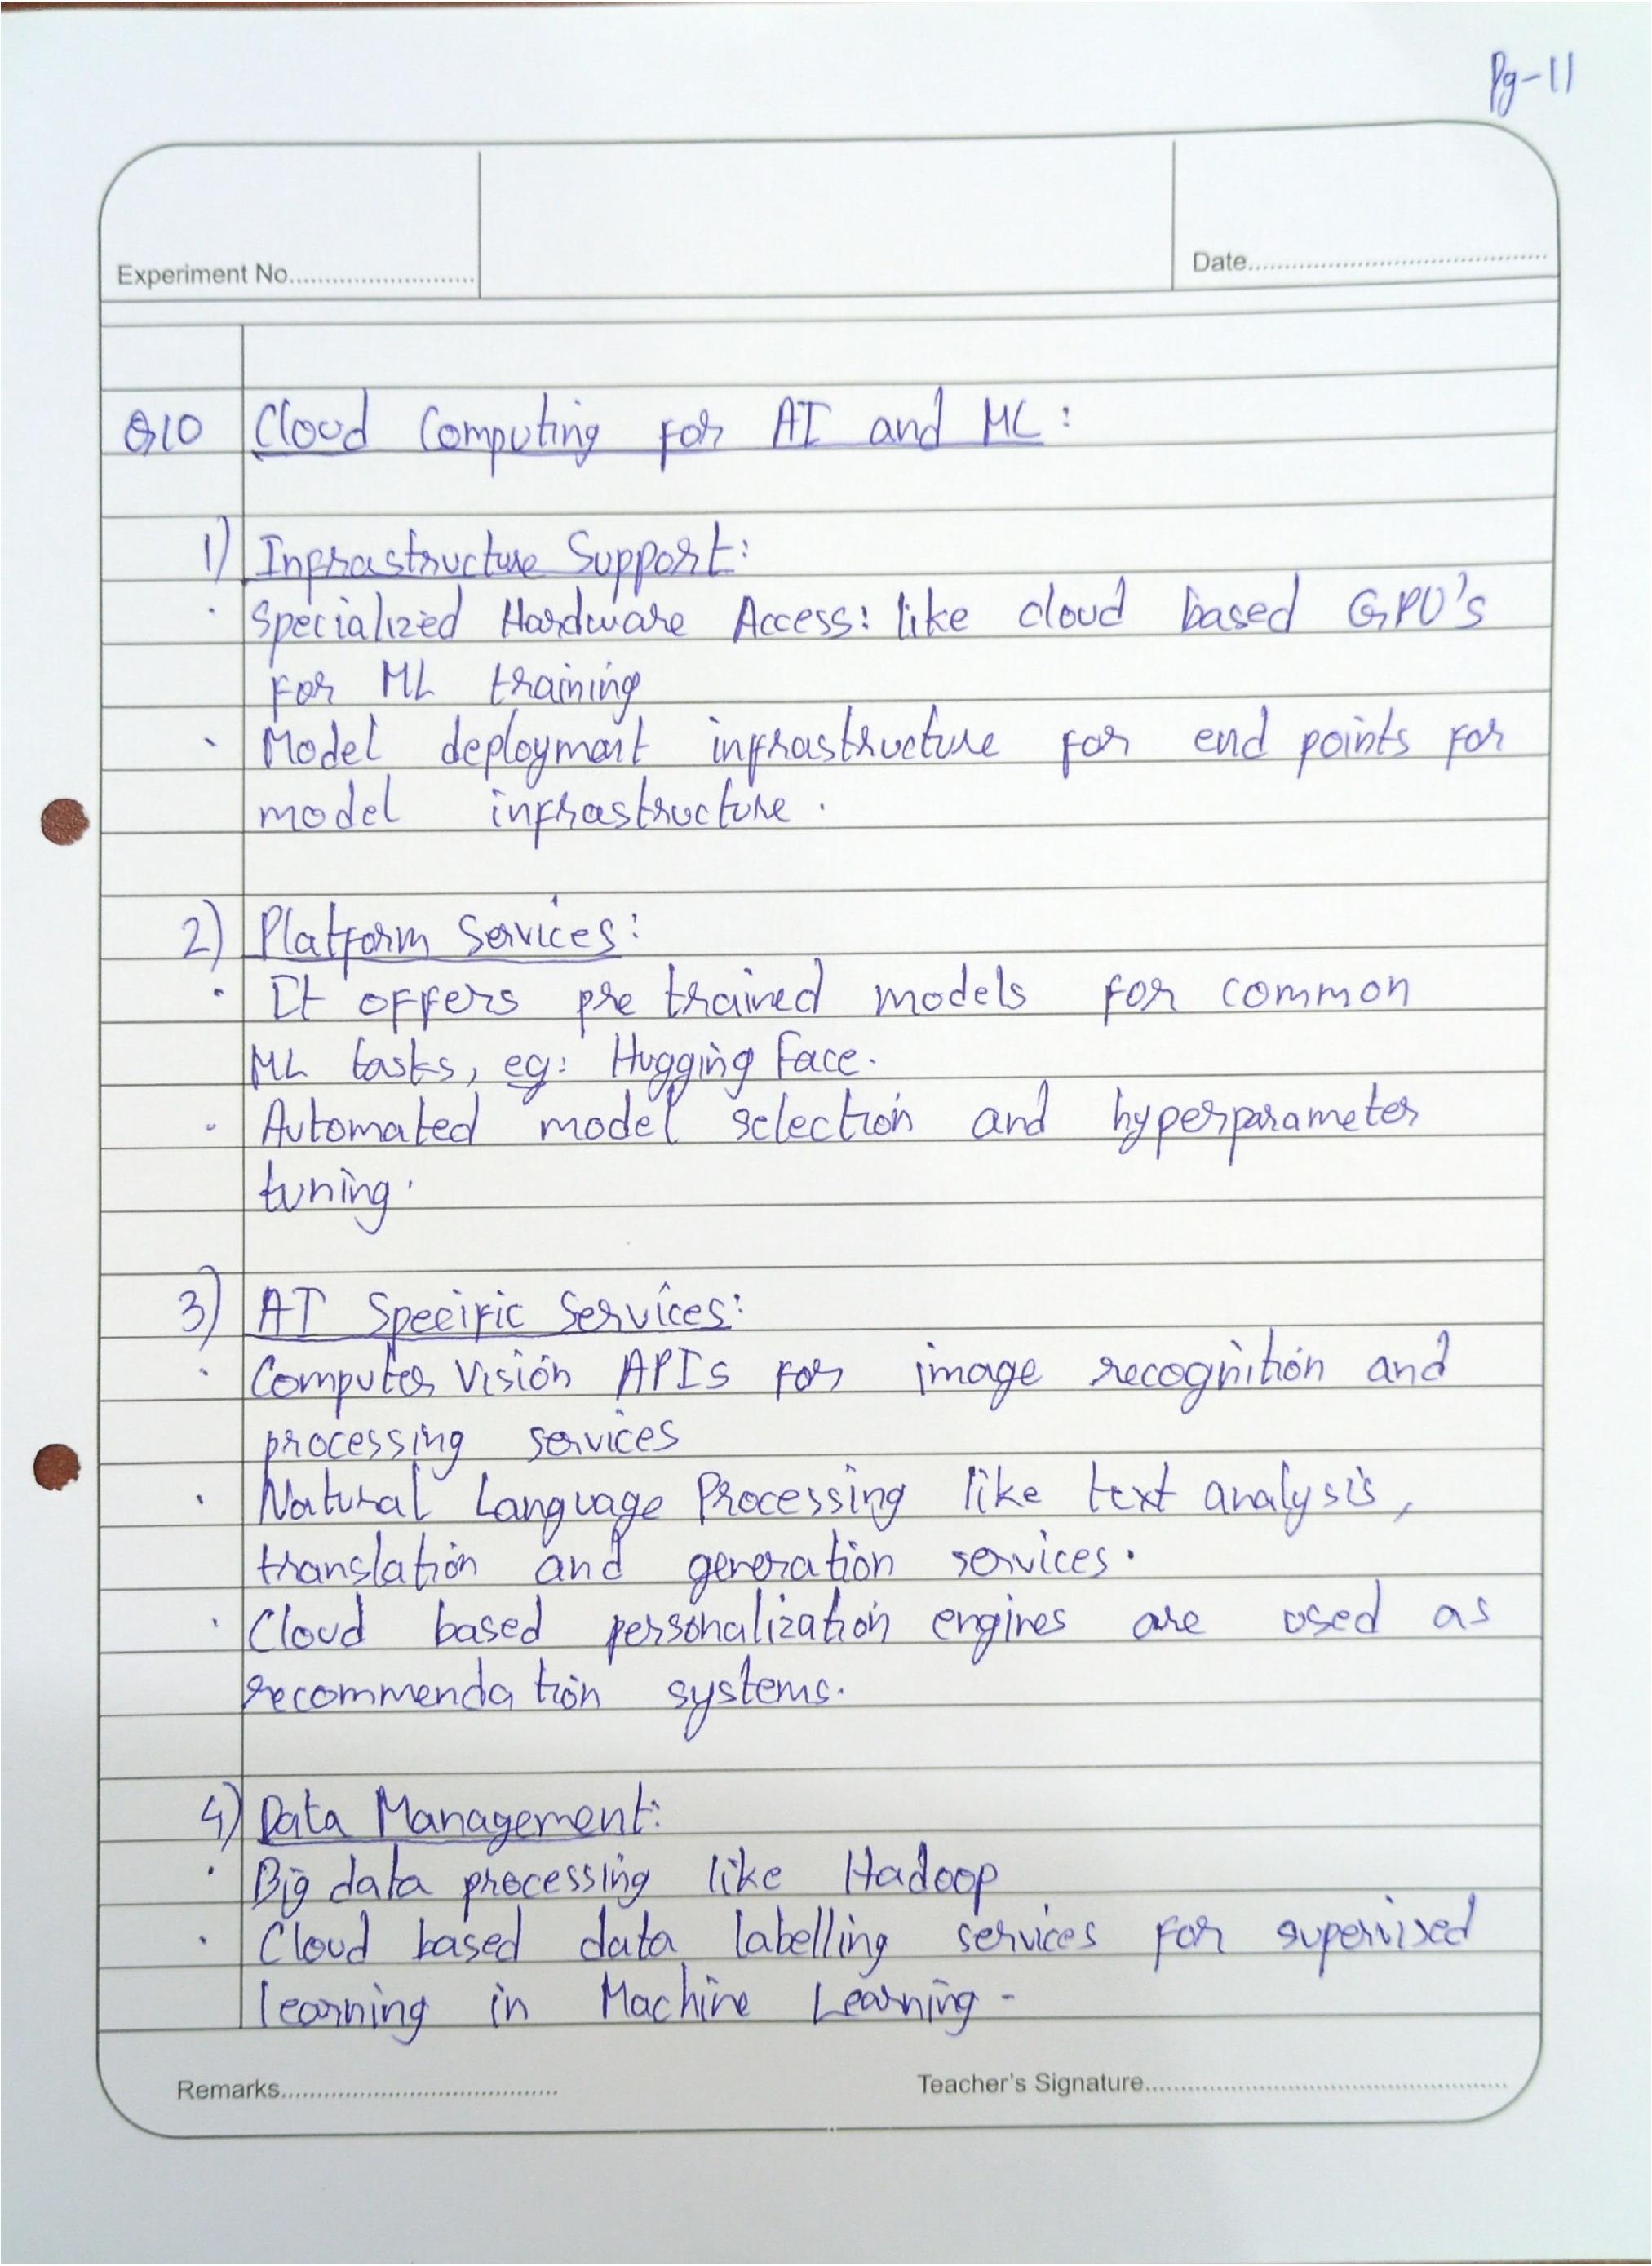 Pg-11
Experiment No.
Date
Q10 Cloud Computing for AI and ML:
1) Infrastructure Support:
· Specialized Hardware Access: like cloud based GPU's
for ML training
· Model deployment infrastructure for end points for
model infrastructure.
2) Platform Services:
· It offers pre trained models for common
ML tasks, eg: Hugging Face.
· Automated model selection and hyperparameter
tuning.
3) AI Specific Services:
· Computer Vision APIs for image recognition and
processing services
· Natural Language Processing like text analysis,
translation and generation services.
· Cloud based personalization engines are used as
recommendation systems.
4) Data Management:
· Big data processing like Hadoop
· Cloud based data labelling services for supervised
learning in Machine Learning-
Remarks
Teacher's Signature